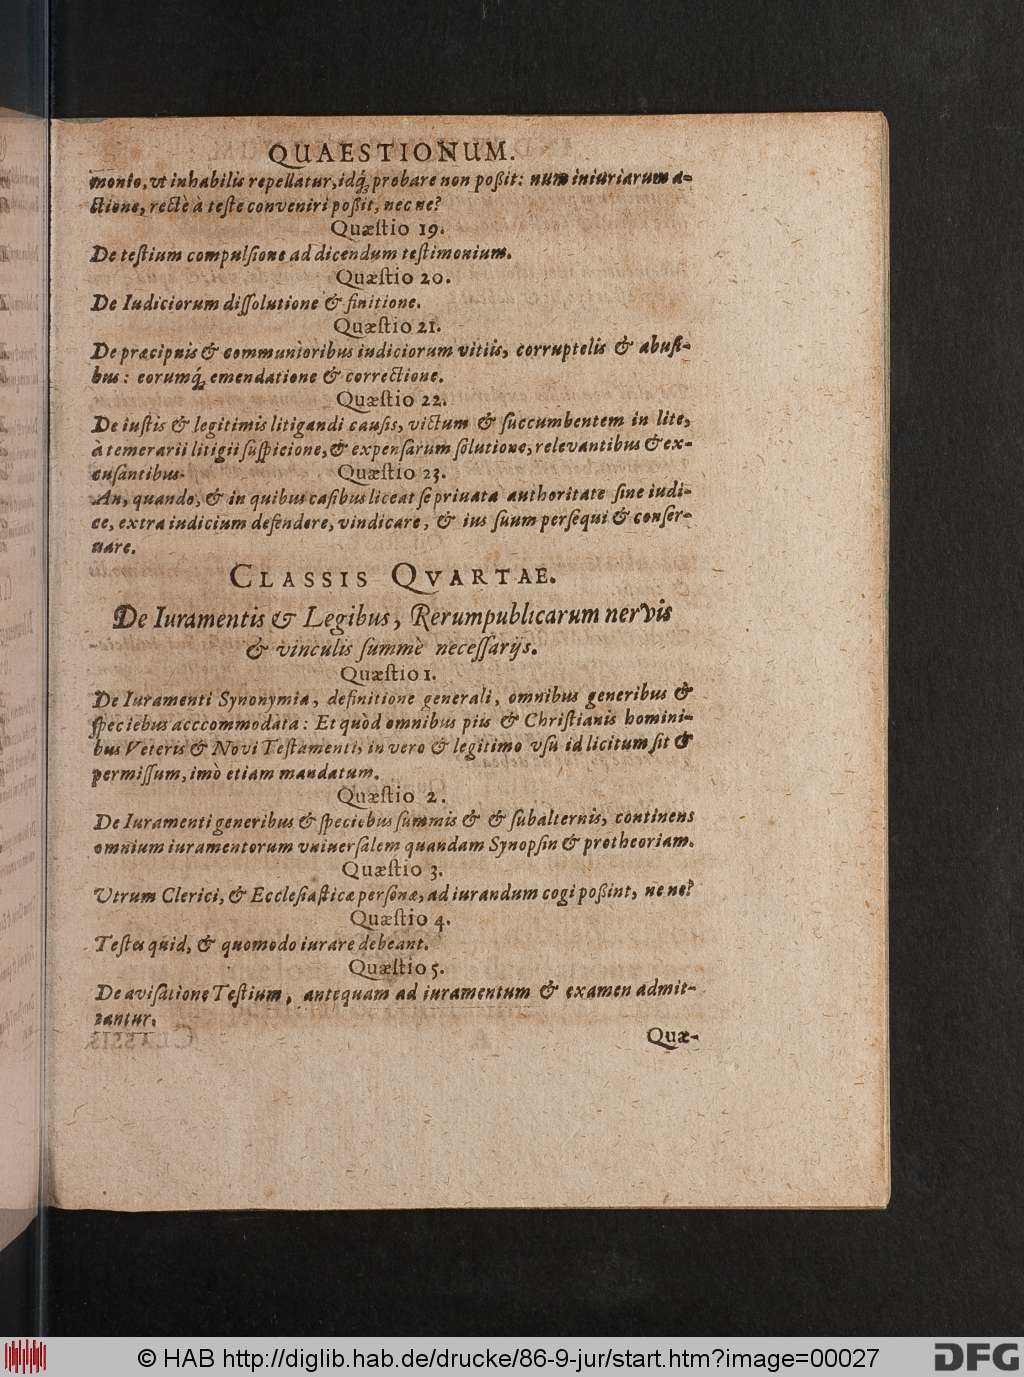 QUAESTIONUM.
monio, vt inhabilis repellatur, idq́; probare non poßit: num iniuriarum a-
ctione, rectè à teste conveniri poßit, nec ne?
Quæstio 19.
De testium compulsione ad dicendum testimonium.
Quæstio 20.
De Iudiciorum dissolutione & finitione.
Quæstio 21.
De præcipuis & communioribus iudiciorum vitiis, corruptelis & abusi-
bus: eorumq́; emendatione & correctione.
Quæstio 22.
De iustis & legitimis litigandi causis, victum & succumbentem in lite,
à temerarii litigii suspicione, & expensarum solutione, relevantibus & ex-
cusantibus. Quæstio 23.
An, quando, & in quibus casibus liceat se priuata authoritate sine iudi-
ce, extra iudicium defendere, vindicare, & ius suum persequi & conser-
uare.
CLASSIS QVARTAE.
De Iuramentis & Legibus, Rerumpublicarum nervis
& vinculis summè necessarijs.
Quæstio 1.
De Iuramenti Synonymia, definitione generali, omnibus generibus &
speciebus acccommodata: Et quòd omnibus piis & Christianis homini-
bus Veteris & Novi Testamenti, in vero & legitimo vsu id licitum sit &
permissum, imò etiam mandatum.
Quæstio 2.
De Iuramenti generibus & speciebus summis & & subalternis, continens
omnium iuramentorum vniuersalem quandam Synopsin & protheoriam.
Quæstio 3.
Utrum Clerici, & Ecclesiasticæ personæ, ad iurandum cogi poßint, ne ne?
Quæstio 4.
Testes quid, & quomodo iurare debeant.
Quæstio 5.
De avisatione Testium, antequam ad iuramentum & examen admit-
tantur.
Quæ-
© HAB http://diglib.hab.de/drucke/86-9-jur/start.htm?image=00027
DFG